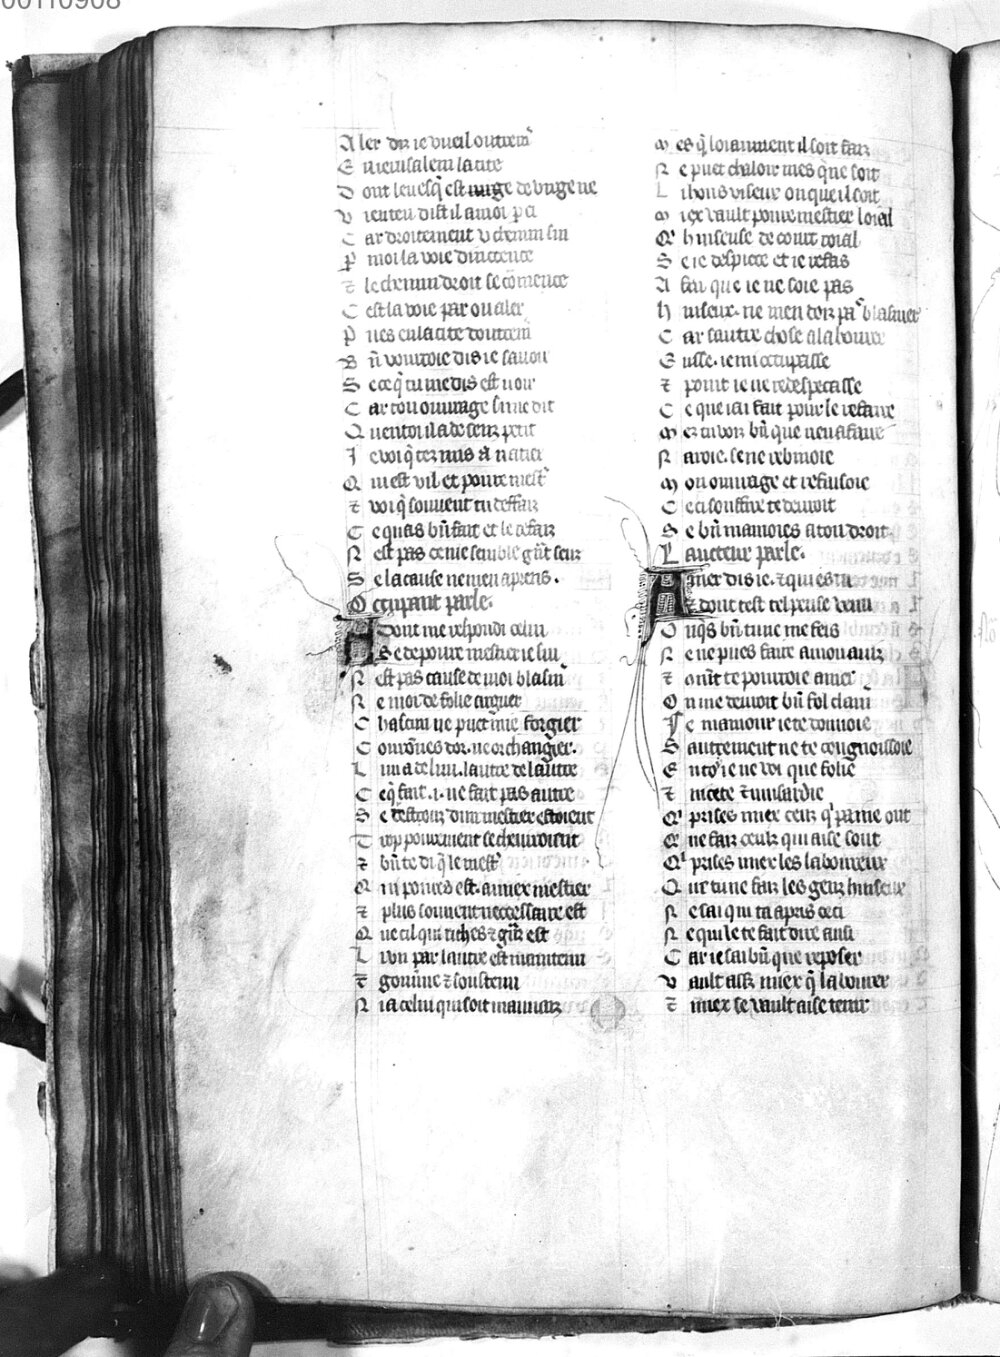 00110908
A ler dist ie vueil oultrem̃
E n ierusalem la cite
D ont leuesq̃ est nuge de virge ne
V ien ten dist il a moi p ci
C ar droitement v chemin sui
P moi la voie dinnocence
⁊ le chemin droit se cõmence
C est la voie par ou aler
P ues en la cite doutrem̃
B ñ vourroie dis ie sauoir
S e ce q̃ tu me dis est voir
C ar ton ouurage si me dit
Q uen toi il a de sens petit
J e voi q̃ tes nus
Q ui est vil et poure mest̃
⁊ voi q̃ souuent tu deffaiz
C e quas bñ fait et le refaiz
N est pas ce me semble g̃nt sens
S e la cause ne men aprens .
O ccupant parle .
A dont me respondi celui
S e de poure mestier ie sui
N est pas cause de moi blasm̃
N e moi de folie arguer
C hascun ne puet mie forgier
C ouronnes dor . ne or changier .
L un a de lun . lautre de lautre
C e q̃ fait .i. ne fait pas autre
S e trestouz dun mestier estoient
T rop pourement se cheuiroient
⁊ bñ te di q̃ le mest̃
Q ui poures est . a miex mestier
⁊ plus souuent necessaire est
Q ue cil qui riches ⁊ g̃nz est
L un par lautre est maintenu
⁊ gouuerne ⁊ soustenu
N i a celui qui soit mauuaiz
M es q̃ loiaument il soit faiz
N e puet chaloir mes que soit
L i hons viseux on que il soit
M iex vault poure mestier loial
Q̃ huiseuse de court roial
S e ie despiece et ie refas
A fin que ie ne soie pas
H uiseux . ne men doiz pas blasmer
C ar sautre chose a labourer
E usse . ie mi occupasse
⁊ point ie ne redespecasse
C e que iai fait pour le refaire
M ez tu voiz bñ que nen ai faire
N auroie . se ne rebrinoie
M on ouurage et refaisoie
C eci souffire te deuroit
S e bñ mamoies a ton droit .
L aucteur parle .
A mer dis ie . ⁊ qui es tu
⁊ dont test tel pensse venu
O nq̃s bñ tu ne me feis
N e ne pues faire a mon auiz
⁊ conm̃t te pourroie amer
O n me deuroit bñ fol clam̃
S e mamour ie te donnoie
S autrement ne te congnoissoie
E n toi ie ne voi que folie
⁊ nicete ⁊ musardie
Q̃ prises miex ceuz q̃ paine ont
Q̃ ne faiz ceulz qui aise sont
Q̃ prises miex les laboureux
Q ue tu ne faiz les genz huiseux
N e sai qui ta apris ceci
N e qui le te fait dire ainsi
C ar ie sai bñ que reposer
V ault assez miex q̃ labourer
⁊ miex se vault aise tenir